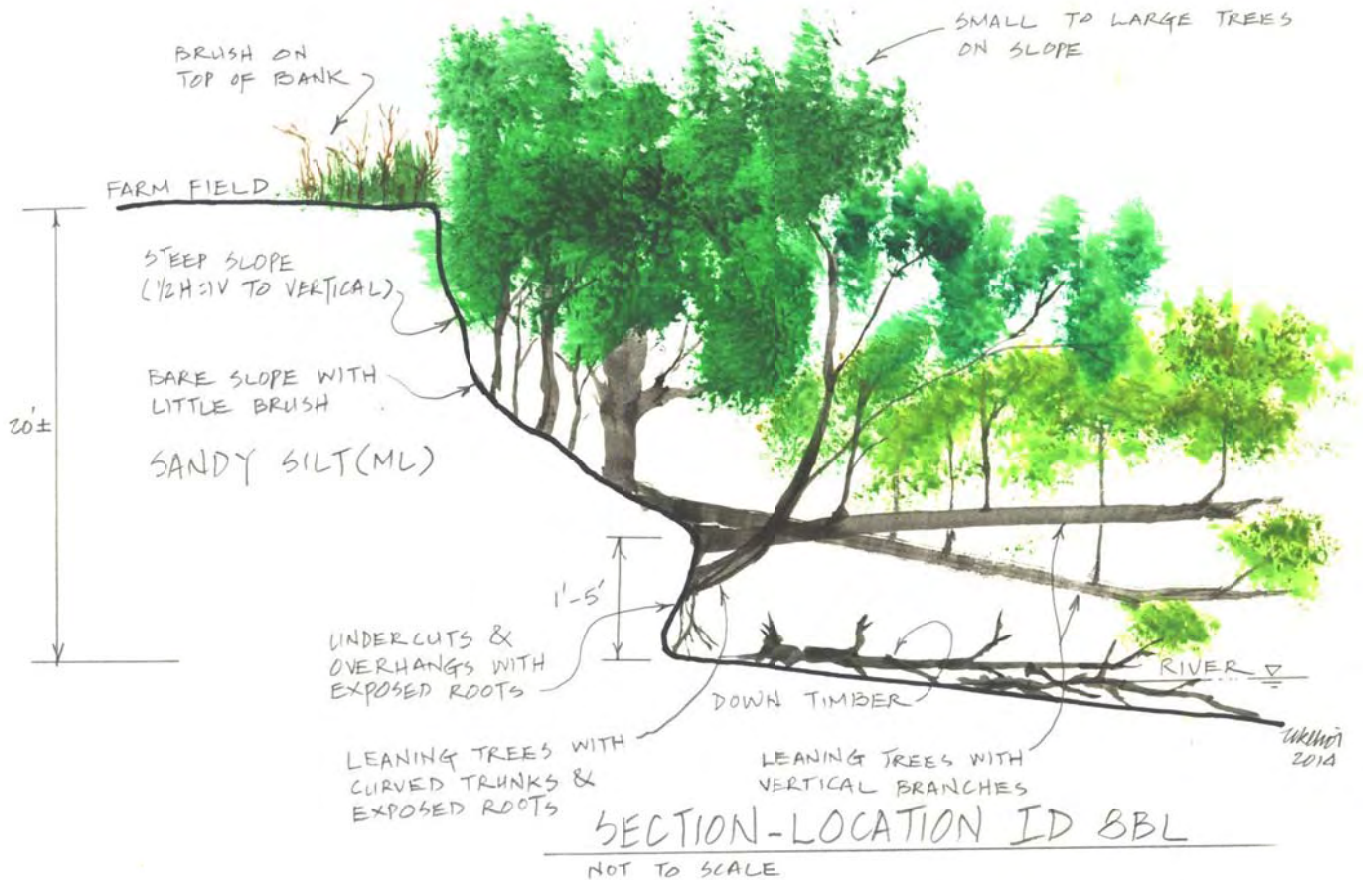 SMALL TO LARGE TREES
ON SLOPE
BRUSH ON
TOP OF BANK
FARM FIELD
STEEP SLOPE
(1/2H:1V TO VERTICAL)
BARE SLOPE WITH
LITTLE BRUSH
20'±
SANDY SILT(ML)
1'-5'
UNDERCUTS &
OVERHANGS WITH
EXPOSED ROOTS
RIVER
DOWN TIMBER
LEANING TREES WITH
CURVED TRUNKS &
EXPOSED ROOTS
LEANING TREES WITH
VERTICAL BRANCHES
2014
SECTION-LOCATION ID 8BL
NOT TO SCALE